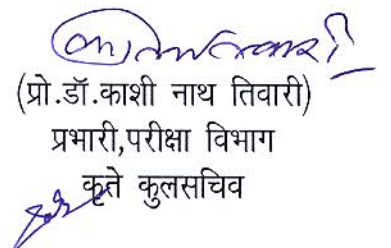 (प्रो.डॉ.काशी नाथ तिवारी)
प्रभारी,परीक्षा विभाग
कृते कुलसचिव